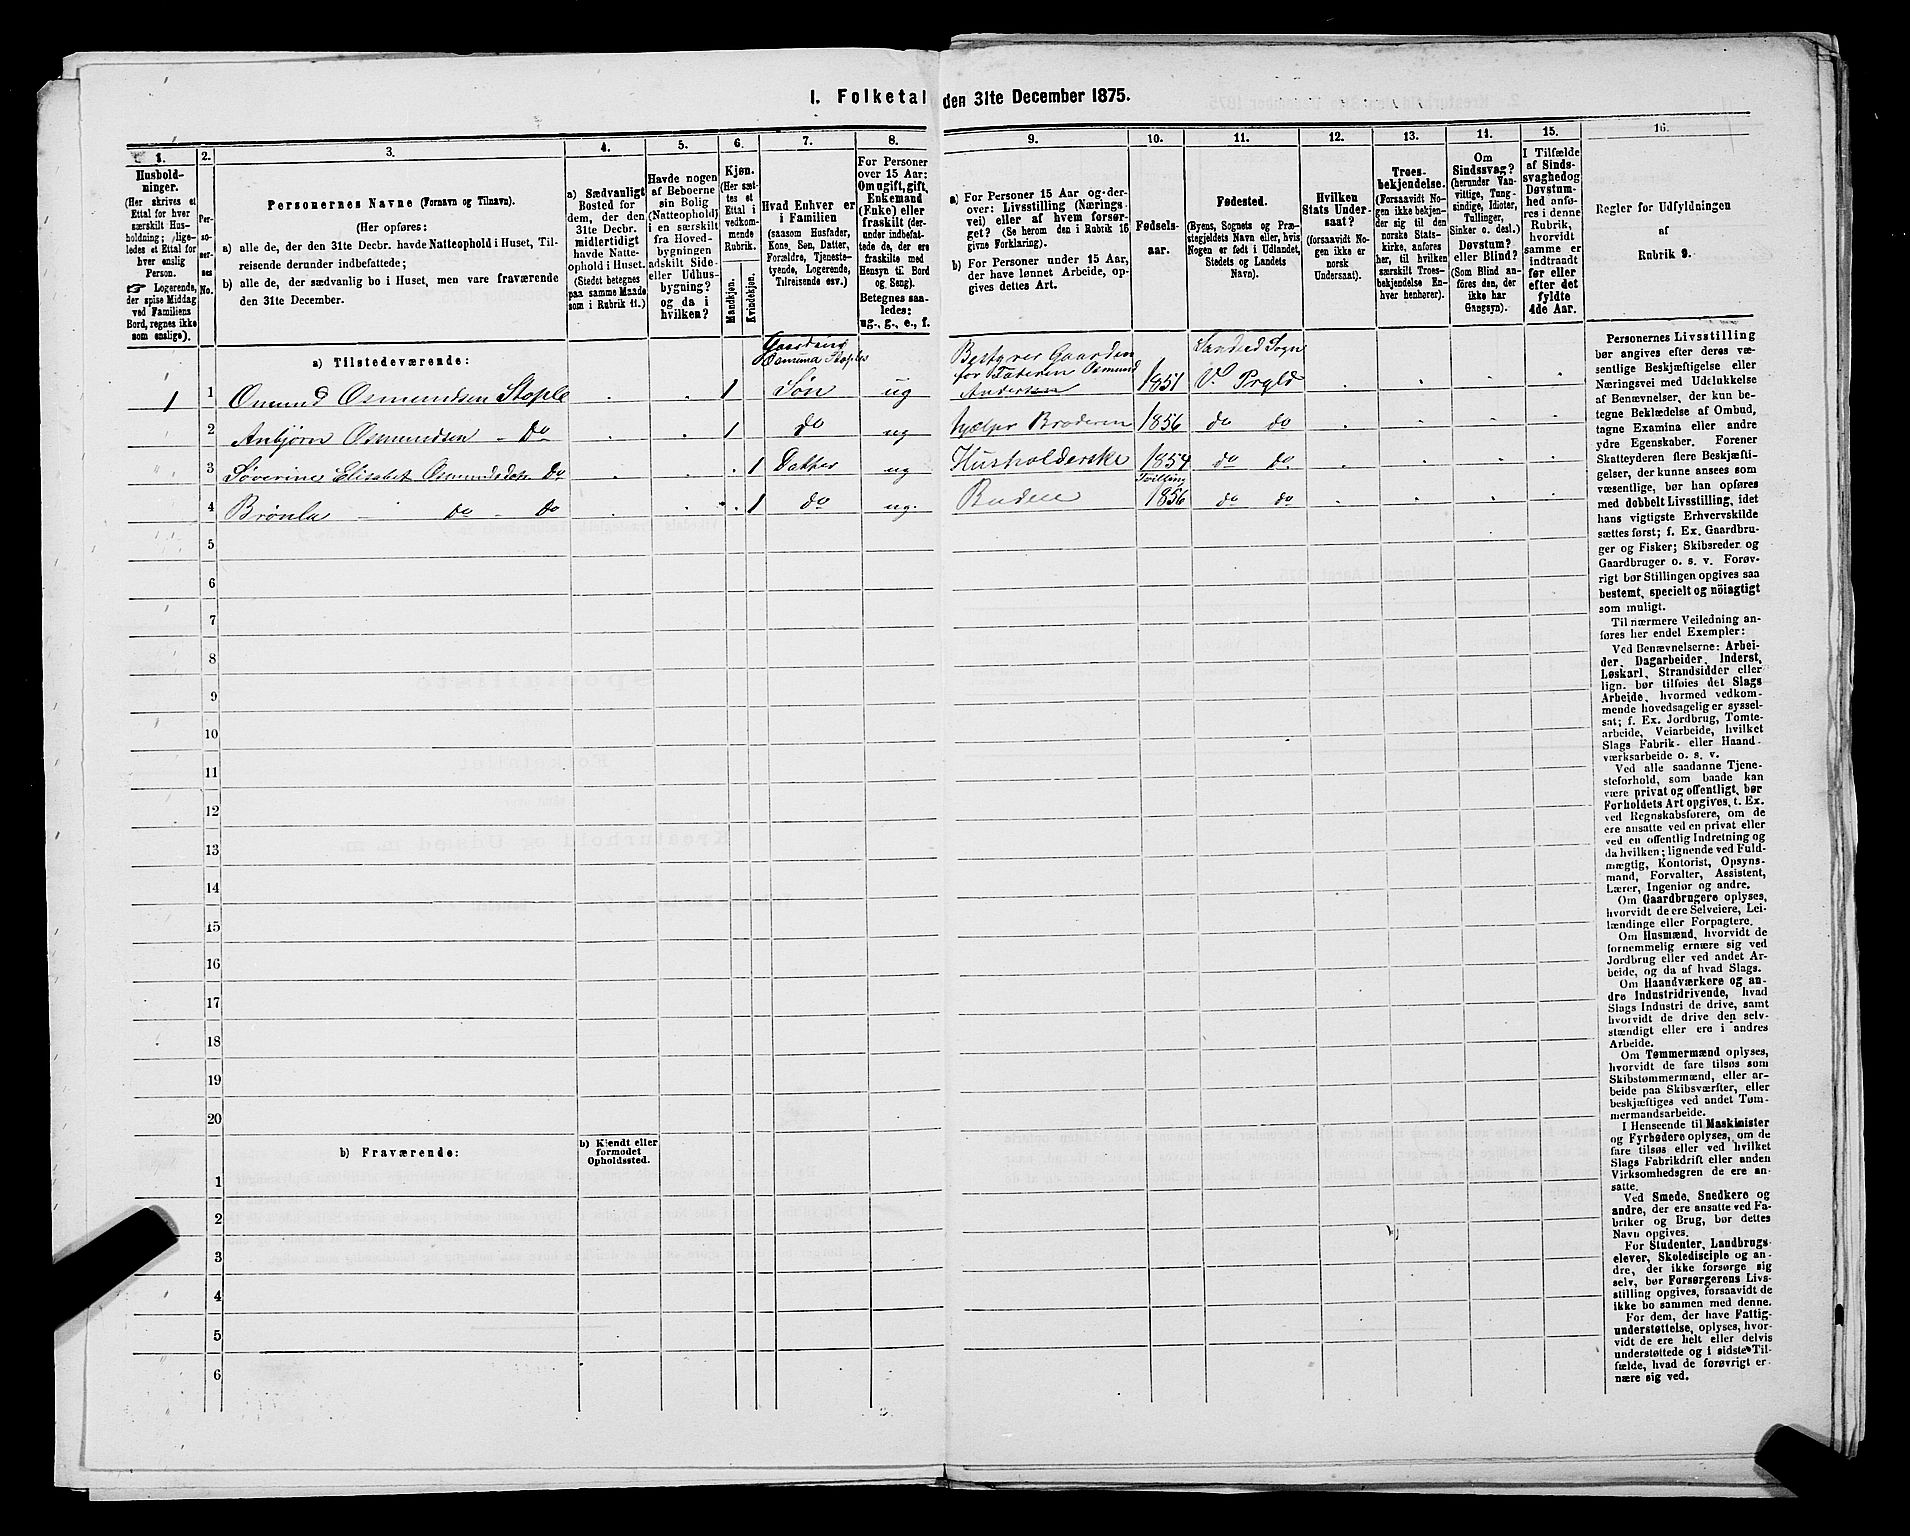 1. Folketal den 31te December 1875.
1.
2.
3.
4.
5.
6.
7.
8.
9.
10.
11.
12.
13.
14.
15.
16.
Husholdninger.
(Her skrives et
Ettal for hver
særskilt Husholdning;
ligeledes et Ettal for
hver enslig
Person.
☞ Logerende,
der spise Middag
ved Familiens
Bord, regnes ikke
som enslige).
Personernes
No.
Personernes Navne (Fornavn og Tilnavn).
(Her opføres:
a) alle de, der den 31te Decbr. havde Natteophold i Huset, Tilreisende derunder indbefattede;
b) alle de, der sædvanlig bo i Huset, men vare fraværende
den 31te December.
a) Sædvanligt
Bosted for
dem, der den
31te Decbr.
midlertidigt
havde Natteophold i Huset.
(Stedet betegnes
paa samme Maade
som i Rubrik 11.)
Havde nogen
af Beboerne
sin Bolig
(Natteophold)
i en særskilt
fra Hovedbygningen
adskilt Side-
eller Udhusbygning?
og da i
hvilken?
Kjøn.
(Her sættes et
Ettal i
vedkommende
Rubrik.
Mandkjøn.
Kvindekjøn.
Hvad Enhver er
i Familien
(saasom Husfader,
Kone, Søn, Datter,
Forældre, Tjenestetyende, Logerende,
Tilreisende osv.)
For Personer
over 15 Aar:
Om ugift, gift,
Enkemand
(Enke) eller
fraskilt (derunder indbefattede de, der ere
fraskilte med
Hensyn til Bord
og Seng).
Betegnes saaledes:
ug., g., e., f.
a) For Personer 15 Aar og derover: Livsstilling (Næringsvei) eller af hvem forsørget? (Se herom den i Rubrik 16
givne Forklaring).
b) For Personer under 15 Aar,
der have lønnet Arbeide, opgives dettes Art.
Fødselsaar.
Fødested.
(Byens, Sognets og Præstegjeldets Navn eller, hvis
Nogen er født i Udlandet,
Stedets og Landets
Navn).
Hvilken
Stats Undersaat?
(forsaavidt Nogen ikke er
norsk
Undersaat).
Troesbekjendelse.
(Forsaavidt Nogen ikke bekjender sig til den
norske Statskirke, anføres
her, til hvilken
særskilt Troesbekjendelse Enhver henhører).
Om
Sindssvag?
(herunder Vanvittige, Tungsindige, Idioter,
Tullinger,
Sinker o. desl.)
Døvstum?
eller Blind?
(Som Blind anføres den, der
ikke har
Gangsyn).
I Tilfælde
af Sindssvaghed og
Døvstumhed anføres i denne
Rubrik,
hvorvidt
samme er
indtraadt
før eller
efter det
fyldte
4de Aar.
Regler for Udfyldningen
af
Rubrik 9.
a) Tilstedeværende:
Gaardens
Osmund Stople
1 1 Omund Osmundsen Stople 1 Søn ug Bestyrer Gaarden for Faderen Osmund Andersen 1851 Sandeid Sogn V. Prgld
2 Anbjørn Osmundsen do 1 do ug hjelper Broderen 1856 do do
3 Søverine Elisabet Osmundsdatter do 1 Datter ug Husholderske 1854 do do
4 Brønla do do 1 do ug. Budeie Tvilling 1856 do do
5
6
7
8
9
10
11
12
13
14
15
16
17
18
19
20
b) Fraværende:
b) Kjendt eller
formodet
Opholdssted.
1
2
3
4
5
6
Personernes Livsstilling
bør angives efter deres væsentlige Beskjæftigelse eller
Næringsvei med Udelukkelse
af Benævnelser, der kun betegne Beklædelse af Ombud,
tagne Examina eller andre
ydre Egenskaber. Forener
Skatteyderen flere Beskjæftigelser, der kunne ansees som
væsentlige, bør han opføres
med dobbelt Livsstilling, idet
hans vigtigste Erhvervskilde
sættes først; f. Ex. Gaardbruger og Fisker; Skibsreder og
Gaardbruger o. s. v. Forøvrigt bør Stillingen opgives saa
bestemt, specielt og nöiagtigt
som muligt.
Til nærmere Veiledning anføres her endel Exempler:
Ved Benævnelserne: Arbeider, Dagarbeider, Inderst,
Løskarl, Strandsidder eller
lign. bør tilføies det Slags
Arbeide, hvormed vedkommende hovedsagelig er sysselsat; f. Ex. Jordbrug, Tomtearbeide, Veiarbeide, hvilket
Slags Fabrik- eller Haandværksarbeide o. s. v.
Ved alle saadanne Tjenesteforhold, som baade kan
være privat og offentligt, bør
Forholdets Art opgives, t. Ex.
ved Regnskabsførere, om de
ere ansatte ved en privat eller
ved en offentlig Indretning og
da hvilken; lignende ved Fuldmægtig, Kontorist, Opsynsmand, Forvalter, Assistent,
Lærer, Ingeniør og andre.
Om Gaardbrugere oplyses,
hvorvidt de ere Selveiere, Leilændinge eller Forpagtere.
Om Husmænd, hvorvidt de
fornemmelig ernære sig ved
Jordbrug eller ved andet Arbeide, og da af hvad Slags.
Om Haandværkere og andre Industridrivende, hvad
Slags Industri de drive, samt
hvorvidt de drive den selvstændigt eller ere i andres
Arbeide.
Om Tømmermænd oplyses,
hvorvidt de fare tilsøs som
Skibstømmermænd, eller arbeide paa Skibsværfter, eller
beskjæftiges ved andet Tømmermandsarbeide.
I Henseende til Maskinister
og Fyrbødere oplyses, om de
fare tilsøs eller ved hvilket
Slags Fabrikdrift eller anden
Virksomhedsgren de ere ansatte.
Ved Smede, Snedkere og
andre, der ere ansatte ved Fabriker og Brug, bør dettes
Navn opgives.
For Studenter, Landbrugselever, Skoledisciple og andre, der ikke forsørge sig
selv, bør Forsørgerens Livsstilling opgives, forsaavidt de
ikke bo sammen med denne.
For dem, der have Fattigunderstøttelse, oplyses, hvorvidt de ere helt eller delvis
understøttede og i sidste Tilfælde, hvad de forøvrigt ernære sig ved.